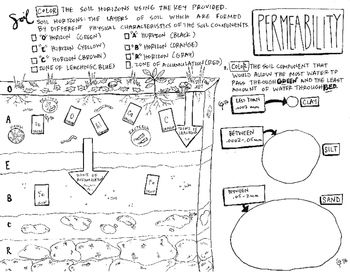 Soil
COLOR THE SOIL HORIZONS USING THE KEY PROVIDED.
SOIL HORIZONS: THE LAYERS OF SOIL WHICH ARE FORMED
BY DIFFERENT PHYSICAL CHARACTERISTICS OF THE SOIL COMPONENTS
"O" HORIZON (GREEN)
"A" HORIZON (BLACK)
"E" HORIZON (YELLOW)
"B" HORIZON (ORANGE)
"C" HORIZON (BROWN)
"R" HORIZON (GRAY)
ZONE OF LEACHING (BLUE)
ZONE OF ACCUMULATION (RED)
PERMEABILITY
COLOR THE SOIL COMPONENT THAT
WOULD ALLOW THE MOST WATER TO
PASS THROUGH GREEN AND THE LEAST
AMOUNT OF WATER THROUGH RED.
LESS THAN
.0002 mm
CLAY
BETWEEN
.0002-.05mm
SILT
BETWEEN
.05-2mm
SAND
O
A
E
B
C
R
ZONE OF
LEACHING
ZONE OF
ACCUMULATION